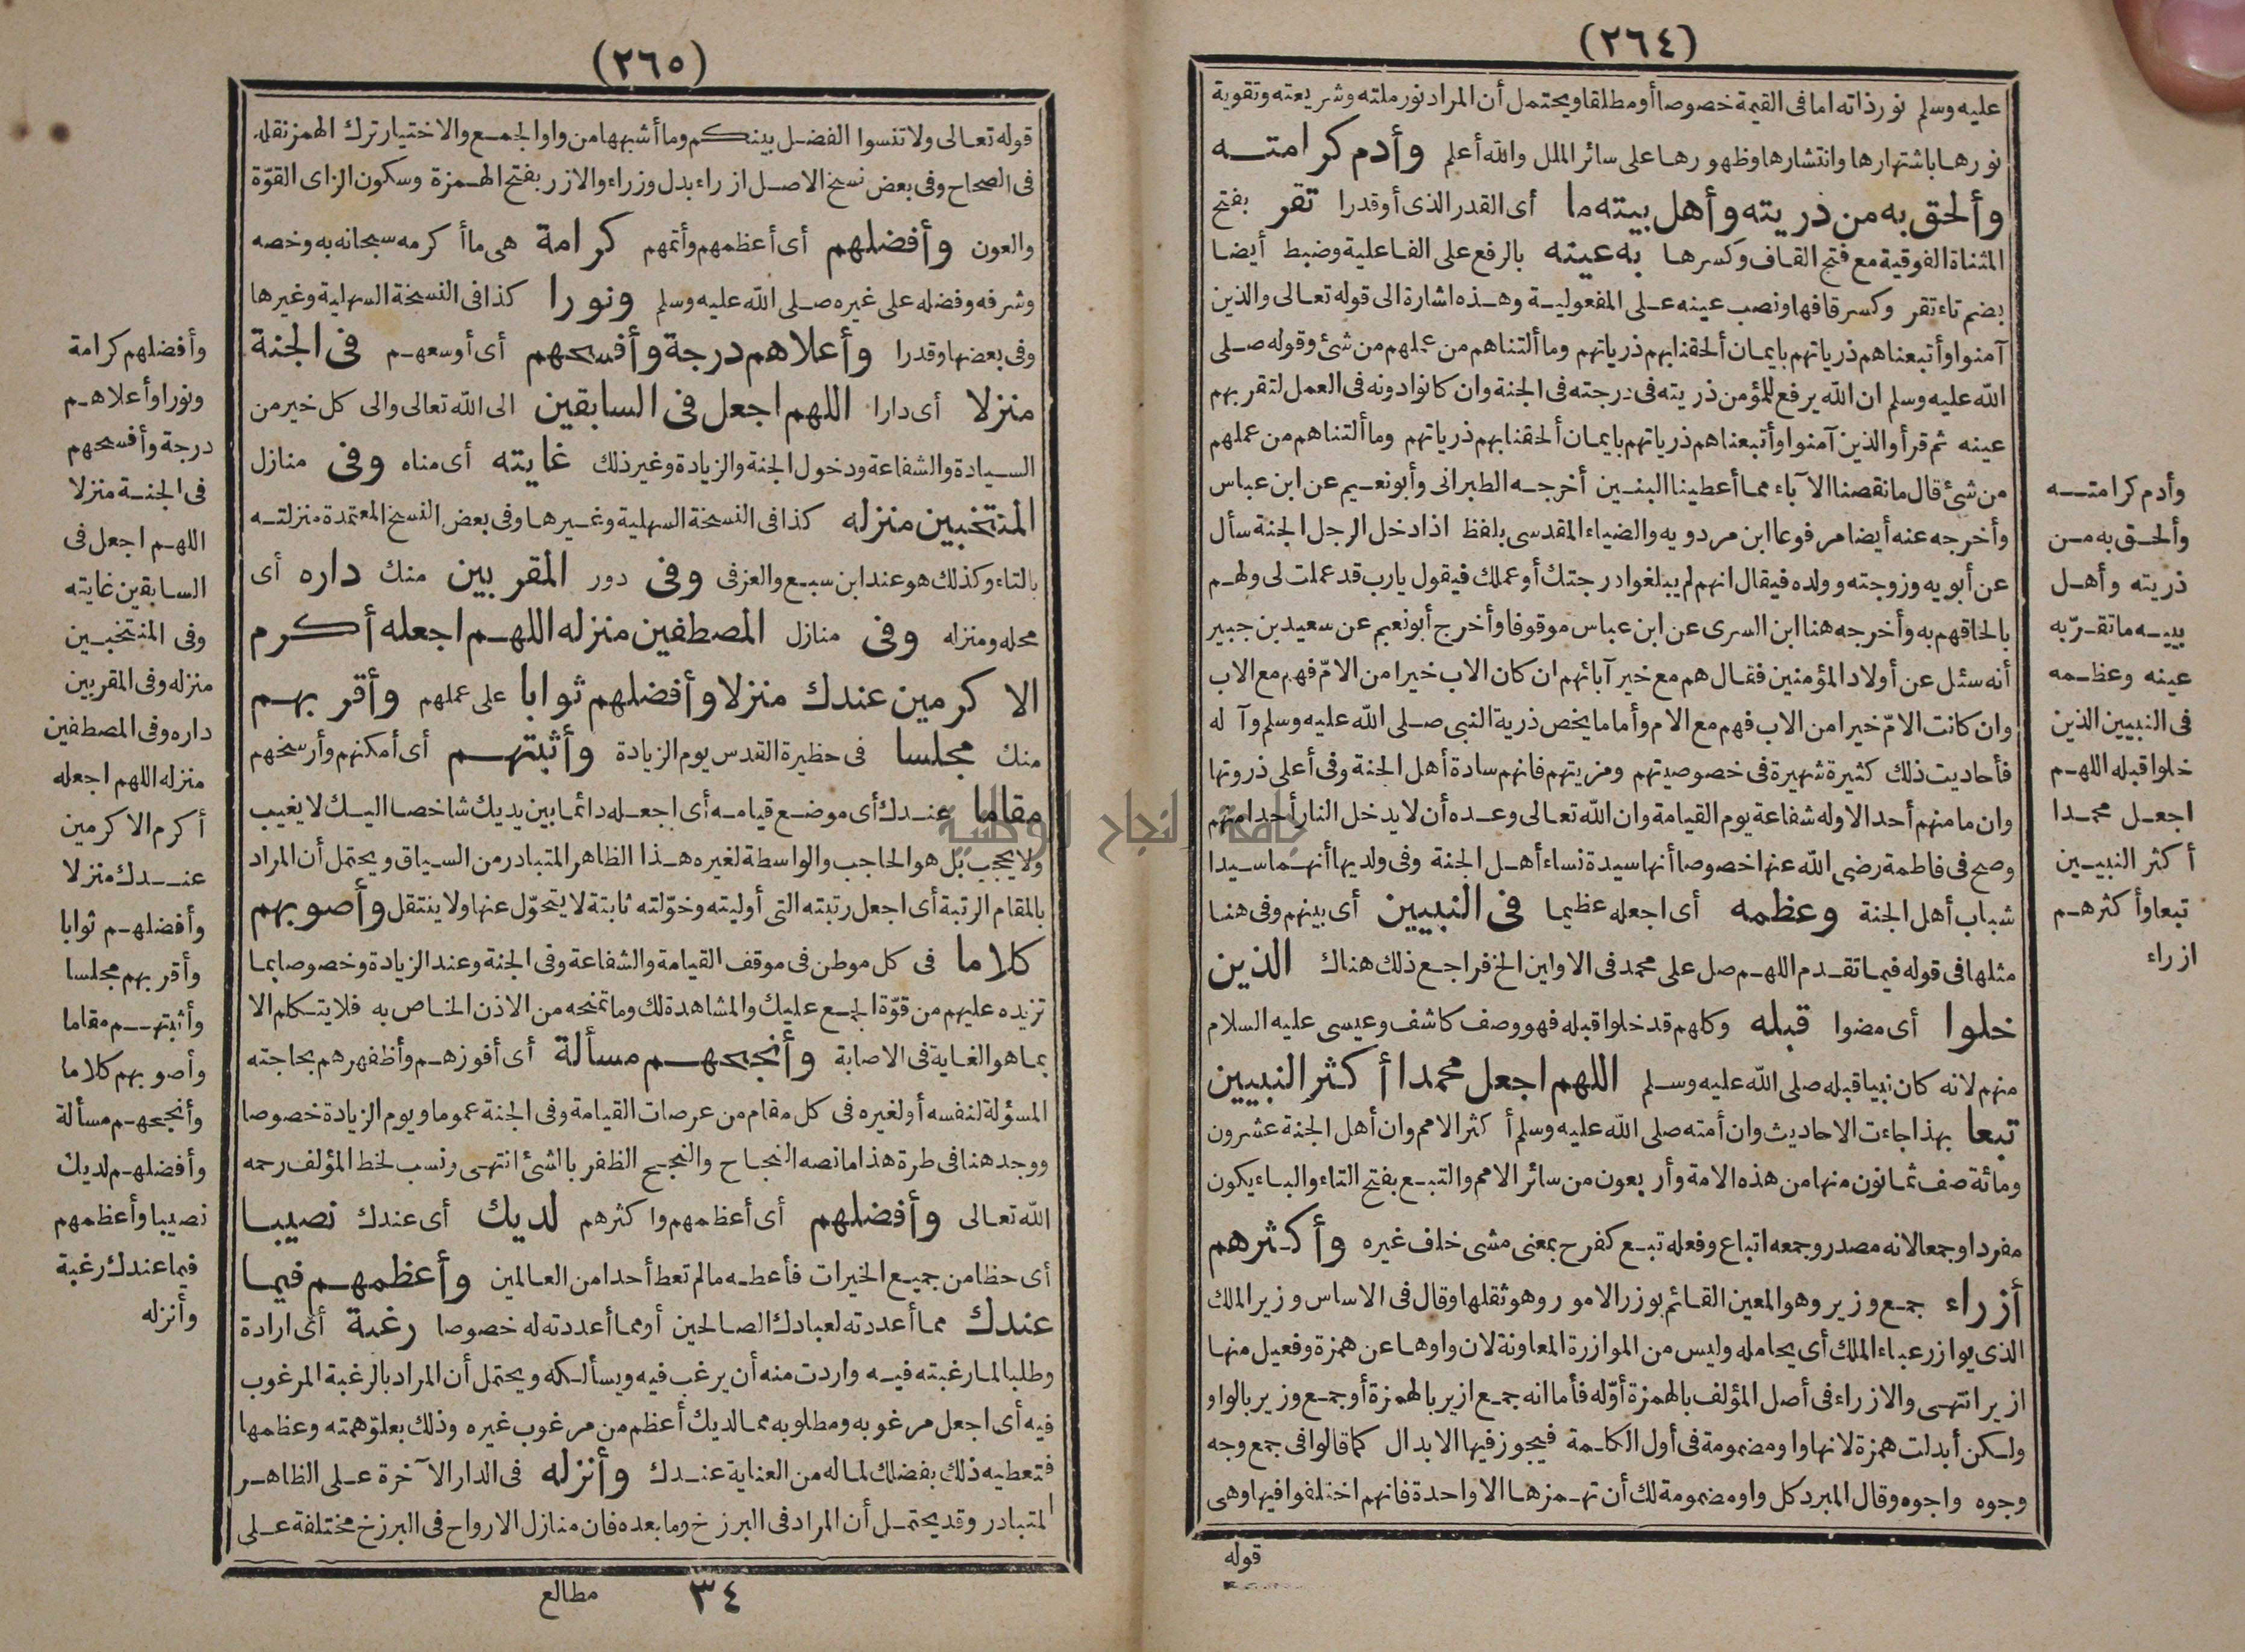 (٢٦٤)
عليه وسلم نور ذاته اما فى القيمة خصوصا أو مطلقا ويحتمل أن المراد نور ملته وشريعته وتقوية
نورها باشتهارها وانتشارها وظهورها على سائر الملل والله أعلم وأدم كرامته
وألحق به من ذريته وأهل بيته ما أى القدر الذى أو قدرا تقر بفتح
المثناة الفوقية مع فتح القاف وكسرها به عينه بالرفع على الفاعلية وضبط أيضا
بضم تاء تقر وكسر قافها ونصب عينه على المفعولية وهذه اشارة الى قوله تعالى والذين
آمنوا وأتبعناهم ذرياتهم بايمان ألحقنا بهم ذرياتهم وما ألتناهم من عملهم من شئ وقوله صلى
الله عليه وسلم ان الله يرفع للمؤمن ذريته فى درجته فى الجنة وان كانوا دونه فى العمل لتقر بهم
عينه ثم قرأ والذين آمنوا وأتبعناهم ذرياتهم بايمان ألحقنا بهم ذرياتهم وما ألتناهم من عملهم
من شئ قال ما نقصنا الآباء مما أعطينا البنين أخرجه الطبرانى وأبو نعيم عن ابن عباس
وأخرجه عنه أيضا مرفوعا ابن مردويه والضياء المقدسى بلفظ اذا دخل الرجل الجنة سأل
عن أبويه وزوجته وولده فيقال انهم لم يبلغوا درجتك أو عملك فيقول يارب قد عملت لى ولهم
بالحاقهم به وأخرجه هنا ابن السرى عن ابن عباس موقوفا وأخرج أبو نعيم عن سعيد بن جبير
أنه سئل عن أولاد المؤمنين فقال هم مع خير آبائهم ان كان الاب خيرا من الامّ فهم مع الاب
وان كانت الامّ خيرا من الاب فهم مع الام وأما ما يخص ذرية النبى صلى الله عليه وسلم وآله
فأحاديث ذلك كثيرة شهيرة فى خصوصيتهم ومزيتهم فانهم سادة أهل الجنة وفى أعلى ذروتها
وان ما منهم أحد الا وله شفاعة يوم القيامة وان الله تعالى وعده أن لا يدخل النار أحدا منهم
وصح فى فاطمة رضى الله عنها خصوصا أنها سيدة نساء أهل الجنة وفى ولديها أنهما سيدا
شباب أهل الجنة وعظمه أى اجعله عظيما فى النبيين أى بينهم وفى هنا
مثلها فى قوله فيما تقدم اللهم صل على محمد فى الاولين الخ فراجع ذلك هناك الذين
خلوا أى مضوا قبله وكلهم قد خلوا قبله فهو وصف كاشف وعيسى عليه السلام
منهم لانه كان نبيا قبله صلى الله عليه وسلم اللهم اجعل محمدا أكثر النبيين
تبعا بهذا جاءت الاحاديث وان أمته صلى الله عليه وسلم أكثر الامم وان أهل الجنة عشرون
ومائة صف ثمانون منها من هذه الامة وأربعون من سائر الامم والتبع بفتح التاء والباء يكون
مفردا وجمعا لانه مصدر وجمعه اتباع وفعله تبع كفرح بمعنى مشى خلف غيره وأكثرهم
أزراء جمع وزير وهو المعين القائم بوزر الامور وهو ثقلها وقال فى الاساس وزير الملك
الذى يوازر عباء الملك أى يحامله وليس من الموازرة المعاونة لان واوها عن همزة وفعيل منها
ازير انتهى والازراء فى أصل المؤلف بالهمزة أوّله فأما انه جمع ازير بالهمزة أو جمع وزير بالواو
ولكن أبدلت همزة لانها واو مضمومة فى أول الكلمة فيجوز فيها الابدال كما قالوا فى جمع وجه
وجوه واجوه وقال المبرد كل واو مضمومة لك أن تهمزها الا واحدة فانهم اختلفوا فيها وهى
قوله
وأدم كرامته
وألحق به من
ذريته وأهل
بيته ما تقرّ به
عينه وعظمه
فى النبيين الذين
خلوا قبله اللهم
اجعل محمدا
أكثر النبيين
تبعا وأكثرهم
ازراء
(٢٦٥)
قوله تعالى ولا تنسوا الفضل بينكم وما أشبهها من واو الجمع والاختيار ترك الهمز نقله
فى الصحاح وفى بعض نسخ الاصل ازراء بدل وزراء والازر بفتح الهمزة وسكون الزاى القوّة
والعون وأفضلهم أى أعظمهم وأتمهم كرامة هى ما أكرمه سبحانه به وخصه
وشرفه وفضله على غيره صلى الله عليه وسلم ونورا كذا فى النسخة السهلية وغيرها
وفى بعضها وقدرا وأعلاهم درجة وأفسحهم أى أوسعهم فى الجنة
منزلا أى دارا اللهم اجعل فى السابقين الى الله تعالى والى كل خير من
السيادة والشفاعة ودخول الجنة والزيادة وغير ذلك غايته أى مناه وفى منازل
المنتخبين منزله كذا فى النسخة السهلية وغيرها وفى بعض النسخ المعتمدة منزلته
بالتاء وكذلك هو عند ابن سبع والعزفى وفى دور المقربين منك داره أى
محله ومنزله وفى منازل المصطفين منزله اللهم اجعله أكرم
الاكرمين عندك منزلا وأفضلهم ثوابا على عملهم وأقربهم
منك مجلسا فى حظيرة القدس يوم الزيادة وأثبتهم أى أمكنهم وأرسخهم
مقاما عندك أى موضع قيامه أى اجعله دائما بين يديك شاخصا اليك لا يغيب
ولا يحجب بل هو الحاجب والواسطة لغيره هذا الظاهر المتبادر من السياق ويحتمل أن المراد
بالمقام الرتبة أى اجعل رتبته التى أوليته وخوّلته ثابتة لا يتحوّل عنها ولا ينتقل وأصوبهم
كلاما فى كل موطن فى موقف القيامة والشفاعة وفى الجنة وعند الزيادة وخصوصا بما
تزيده عليهم من قوّة الجمع عليك والمشاهدة لك وما تمنحه من الاذن الخاص به فلا يتكلم الا
بما هو الغاية فى الاصابة وأنجحهم مسألة أى أفوزهم وأظفرهم بحاجته
المسؤلة لنفسه أو لغيره فى كل مقام من عرصات القيامة وفى الجنة عموما ويوم الزيادة خصوصا
ووجد هنا فى طرة هذا ما نصه النجاح والنجح الظفر بالشئ انتهى ونسب لخط المؤلف رحمه
الله تعالى وأفضلهم أى أعظمهم واكثرهم لديك أى عندك نصيبا
أى حظا من جميع الخيرات فأعطه ما لم تعط أحدا من العالمين وأعظمهم فيما
عندك مما أعددته لعبادك الصالحين أو مما أعددته له خصوصا رغبة أى ارادة
وطلبا لما رغبته فيه واردت منه أن يرغب فيه ويسألكه ويحتمل أن المراد بالرغبة المرغوب
فيه أى اجعل مرغوبه ومطلوبه مما لديك أعظم من مرغوب غيره وذلك بعلوّ همته وعظمها
فتعطيه ذلك بفضلك لما له من العناية عندك وأنزله فى الدار الآخرة على الظاهر
المتبادر وقد يحتمل أن المراد فى البرزخ وما بعده فان منازل الارواح فى البرزخ مختلفة على
٣٤ مطالع
وأفضلهم كرامة
ونورا وأعلاهم
درجة وأفسحهم
فى الجنة منزلا
اللهم اجعل فى
السابقين غايته
وفى المنتخبين
منزله وفى المقربين
داره وفى المصطفين
منزله اللهم اجعله
أكرم الاكرمين
عندك منزلا
وأفضلهم ثوابا
وأقربهم مجلسا
وأثبتهم مقاما
وأصوبهم كلاما
وأنجحهم مسألة
وأفضلهم لديك
نصيبا وأعظمهم
فيما عندك رغبة
وأنزله
جامعة النجاح الوطنية